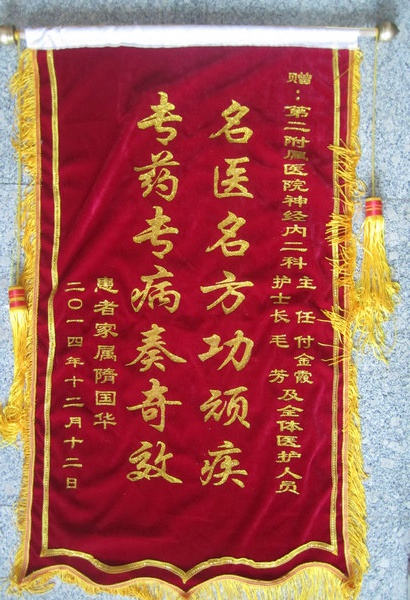 赠：第二附属医院神经内二科
主任付金霞
护士长毛芳
及全体医护人员
名医名方功顽疾
专药专病奏奇效
患者家属隋国华
二〇一四年十二月十二日